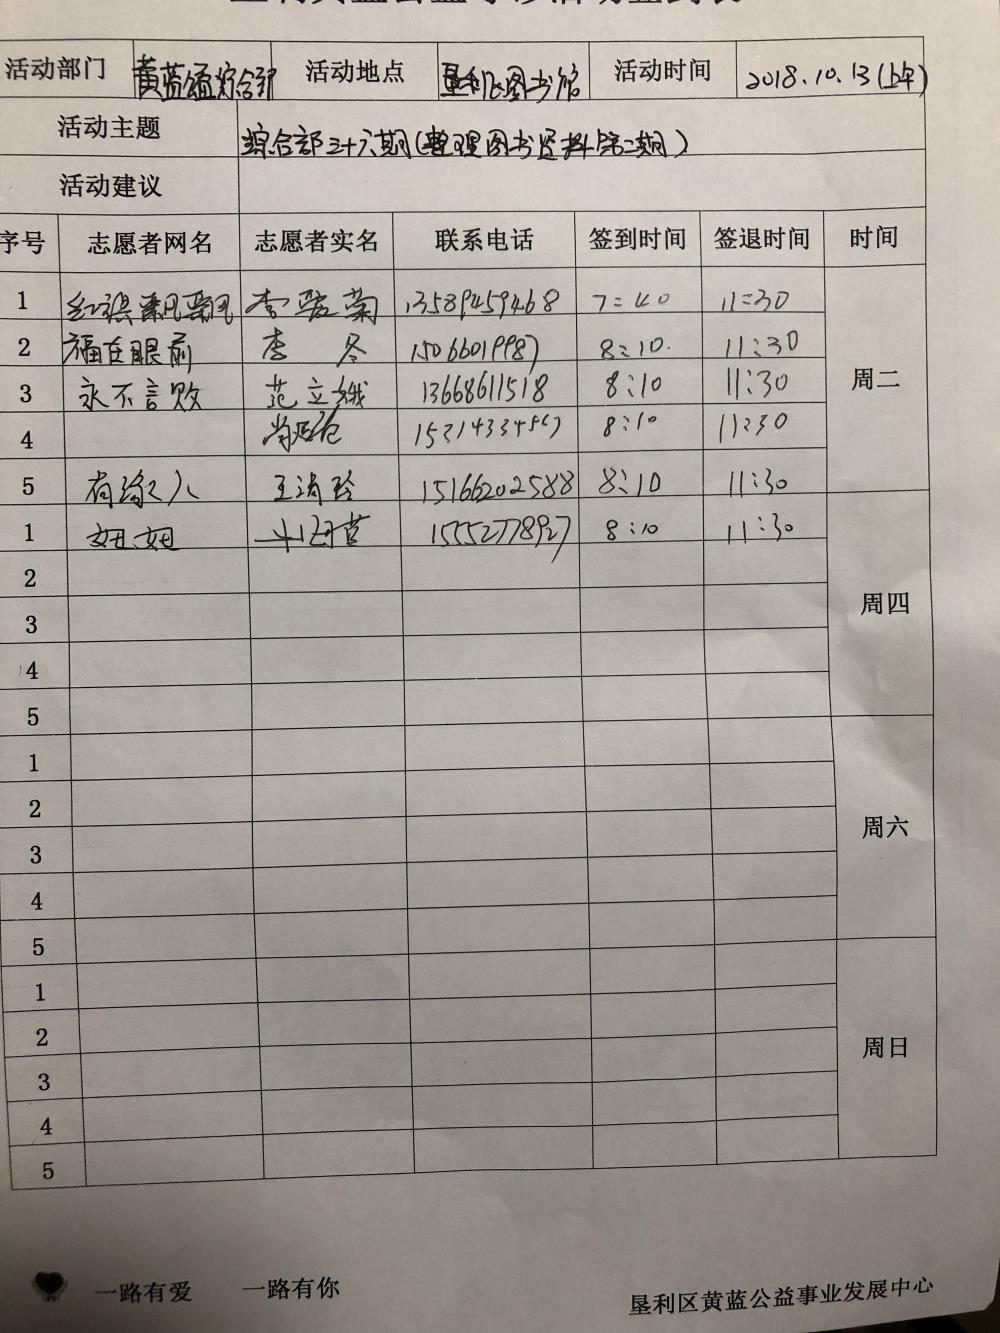 活动部门 黄蓝公益综合部 活动地点 垦利区图书馆 活动时间 2018.10.13(上午)
活动主题 综合部三十六期(整理图书资料第二期)
活动建议
序号 志愿者网名 志愿者实名 联系电话 签到时间 签退时间 时间
1 红裙飘飘 李 菊 13589459468 7:40 11:30
2 福在眼前 李 冬 15066019987 8:10. 11:30
3 永不言败 范立娥 13668611518 8:10 11:30 周二
4 8:10 11:30
5 有缘人 王清玲 15166202588 8:10 11:30
1 妞妞 15552778927 8:10 11:30
2
3 周四
4
5
1
2
3 周六
4
5
1
2
3 周日
4
5
一路有爱 一路有你
垦利区黄蓝公益事业发展中心